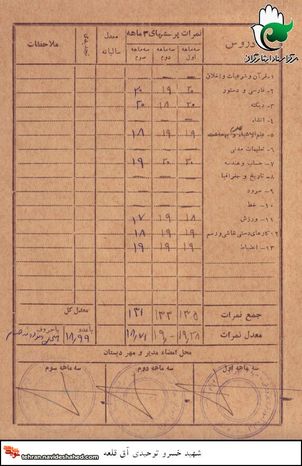 دروس
نمرات پرسشهای ۳ ماهه
معدل سالیانه
تجدیدی
ملاحظات
سه ماهه اول
سه ماهه دوم
سه ماهه سوم
۱- قرآن و شرعیات و اخلاق
۲- فارسی و دستور ۲۰ ۱۹ ۲۰
۳- دیکته ۲۰ ۱۸ ۲۰
۴- انشاء
۵- ۱۹ ۱۹ ۱۸
۶- تعلیمات مدنی
۷- حساب و هندسه ۲۰ ۲۰ ۱۹
۸- تاریخ و جغرافیا
۹- سرود
۱۰- خط
۱۱- ورزش ۱۸ ۱۹ ۱۷
۱۲- کارهای دستی نقاشی و رسم ۱۹ ۱۹ ۱۸
۱۳- انضباط ۱۹ ۱۹ ۱۹
جمع نمرات ۱۳۵ ۱۳۳ ۱۳۱
معدل کل
معدل نمرات
باعدد ۱۸٫۹۹
باحروف
محل امضاء مدیر و مهر دبستان
سه ماهه اول
سه ماهه دوم
سه ماهه سوم
tehran.navideshahed.com
شهید خسرو توحیدی آق قلعه